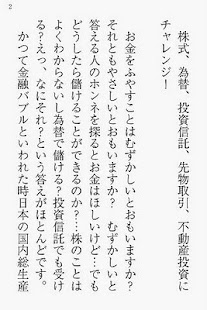 2
株式、為替、投資信託、先物取引、不動産投資に
チャレンジ！
お金をふやすことはむずかしいとおもいますか？
それともやさしいとおもいますか？　むずかしいと
答える人のホンネを探るとお金はほしいけど…でも
どうしたら儲けることができるのか？…株のことは
よくわからないし為替で儲ける？投資信託でも受け
る？えっ、なにそれ？という答えがほとんどです。
かつて金融バブルといわれた時日本の国内総生産